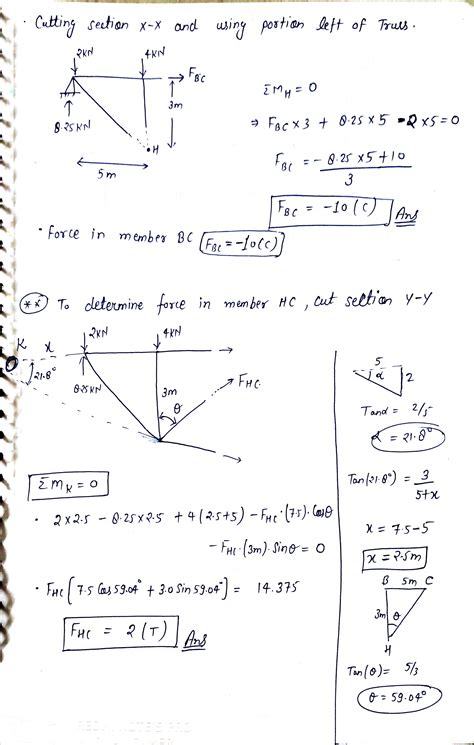 · Cutting section X-X and using portion left of Truss.
2KN
4KN
F_BC
3m
8.25KN
H
5m
ΣM_H = 0
⇒ F_BC × 3 + 8.25 × 5 - 2 × 5 = 0
F_BC = -8.25 × 5 + 10 / 3
F_BC = -10 (C) Ans
· Force in member BC F_BC = -10 (C)
** To determine force in member HC, cut section Y-Y
K
x
2KN
4KN
21.8°
8.25KN
3m
θ
F_HC
5
α
2
Tanα = 2/5
α = 21.8°
ΣM_K = 0
Tan(21.8°) = 3 / 5+x
· 2 × 2.5 - 8.25 × 2.5 + 4(2.5+5) - F_HC·(7.5)·Cosθ
- F_HC·(3m)·Sinθ = 0
x = 7.5-5
x = 2.5m
· F_HC [7.5 Cos 59.04° + 3.0 Sin 59.04°] = 14.375
F_HC = 2 (T) Ans
B 5m C
3m
θ
H
Tan(θ) = 5/3
θ = 59.04°